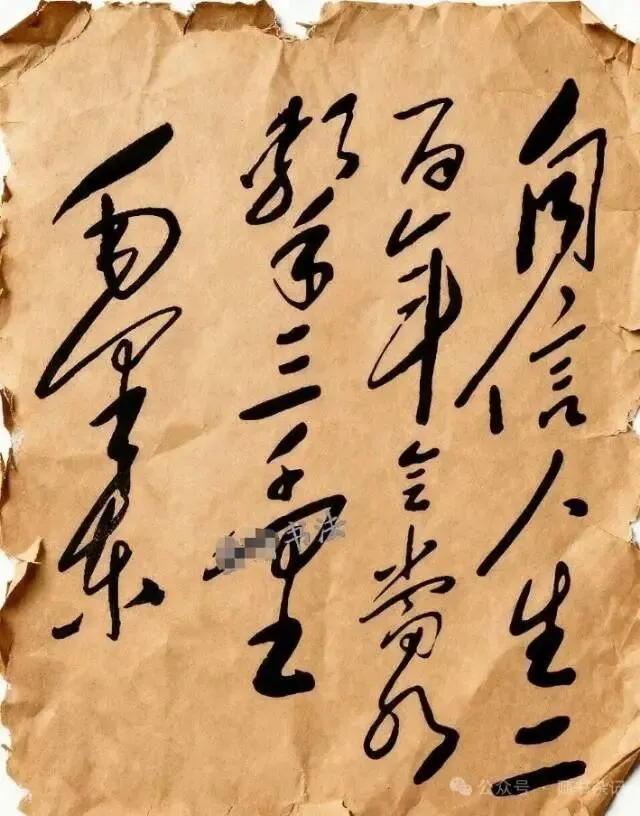 自信人生二
百年会当水
击三千里
毛泽东
书法
公众号